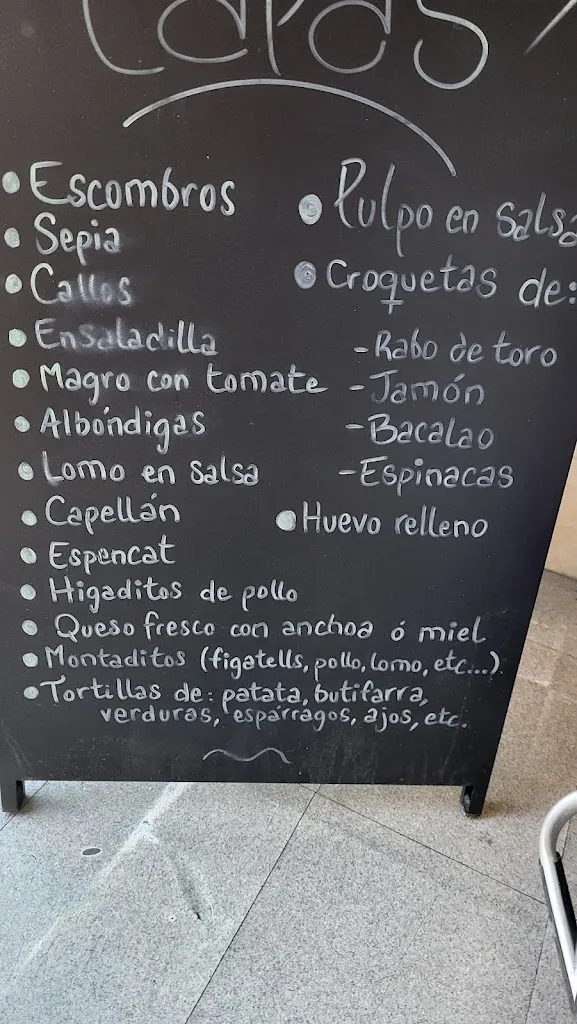 Tapas
• Escombros
• Sepia
• Callos
• Ensaladilla
• Magro con tomate
• Albóndigas
• Lomo en salsa
• Capellán
• Espencat
• Higaditos de pollo
• Queso fresco con anchoa ó miel
• Montaditos (figatells, pollo, lomo, etc...)
• Tortillas de: patata, butifarra,
verduras, espárragos, ajos, etc.
• Pulpo en salsa
• Croquetas de:
- Rabo de toro
- Jamón
- Bacalao
- Espinacas
• Huevo relleno